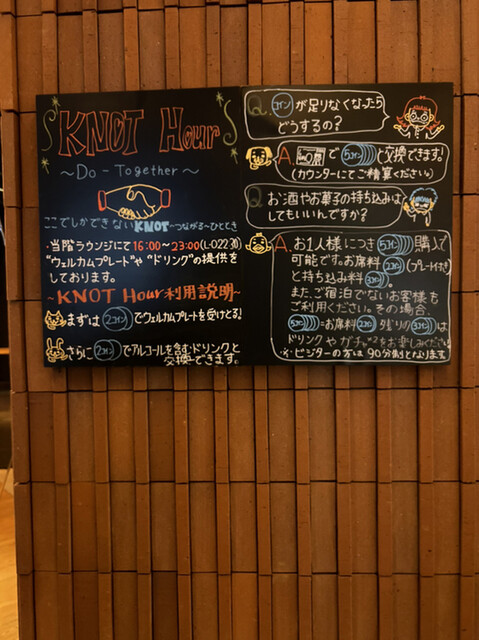 KNOT Hour
～Do-Together～
ここでしかできないKNOT…つながる～ひととき
・当階ラウンジにて16:00～23:00(L.O22:30)
"ウェルカムプレート"や"ドリンク"の提供を
しております。
～KNOT Hour利用説明～
まずは2コインでウェルカムプレートを受けとる!
さらに2コインでアルコールを含むドリンクと
交換できます。
Q.コインが足りなくなったら
どうするの?
A.で5コインと交換できます。
(カウンターにてご精算ください。)
Q お酒やお菓子の持ち込みは
してもいいんですか?
A.お1人様につき5コイン購入で
可能です。お席料2コイン(プレート付き)
と持ち込み料3コイン。
また、ご宿泊でないお客様も
ご利用ください。その場合、
5コイン…お席料2コイン残りの3コインは
ドリンクやガチャ²をお楽しみください
※ビジターの方は90分制となります